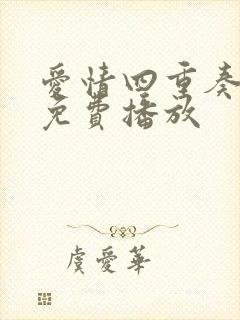 愛情四重奏
免費播放
虞愛華